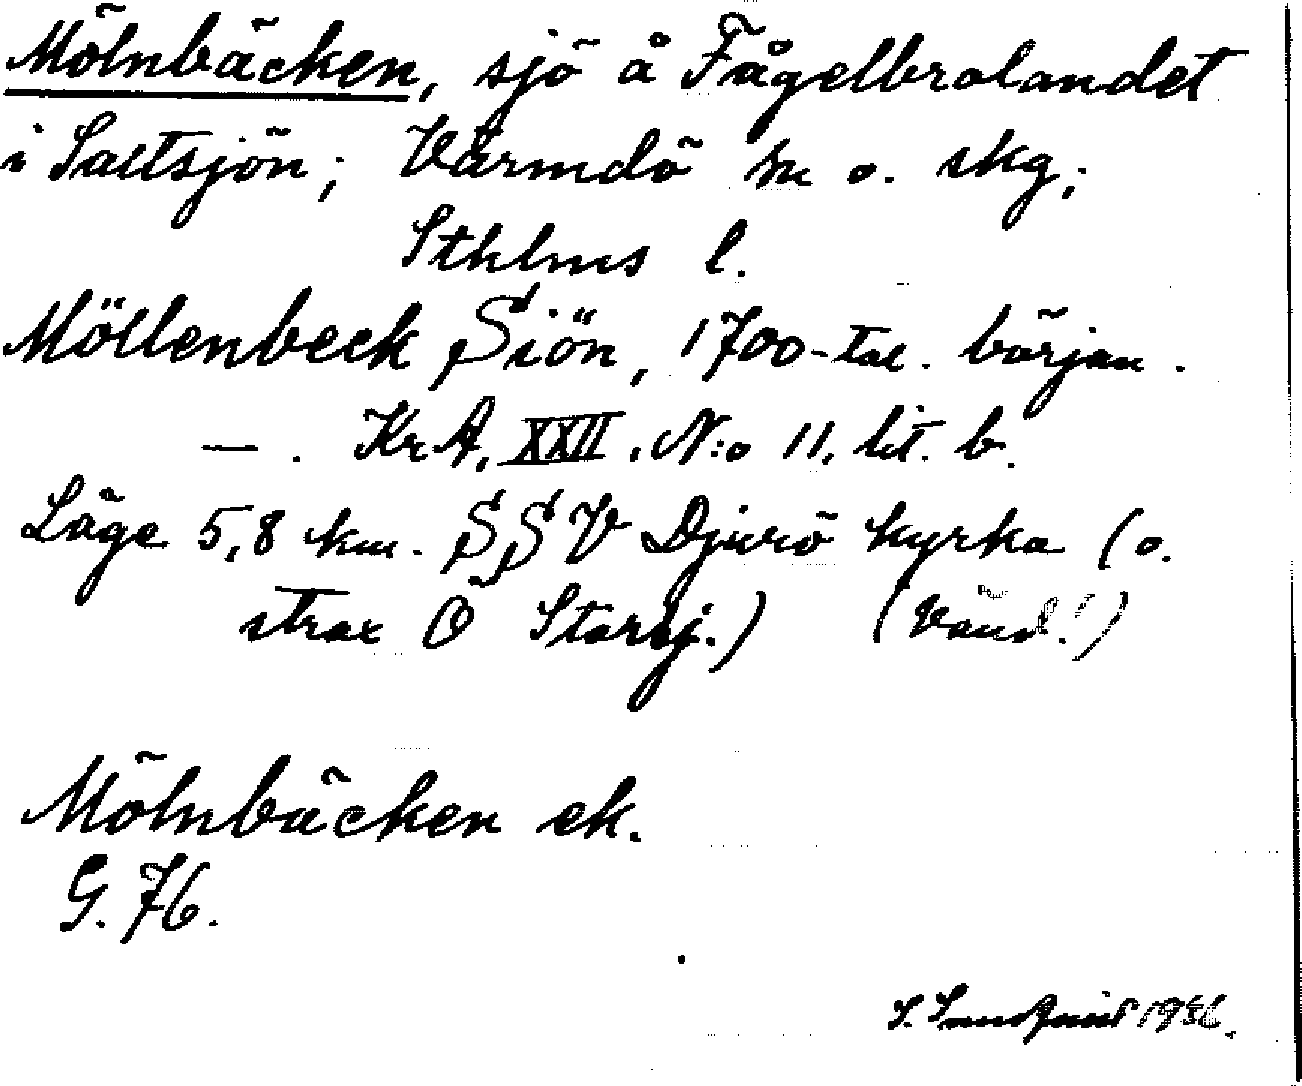 Mölnbäcken, sjö å Fågelbrolandet
i Saltsjön; Värmdö sn o. skg;
Sthlms l.
Möllenbeck Siön, 1700-tal. början.
—. KrA, XXII. N:o 11. lit. b.
Läge 5,8 km. SSV Djurö kyrka (o.
strax Ö Storsj.) (Vänd!)
Mölnbäcken ek.
G. 76.
S. 1936.